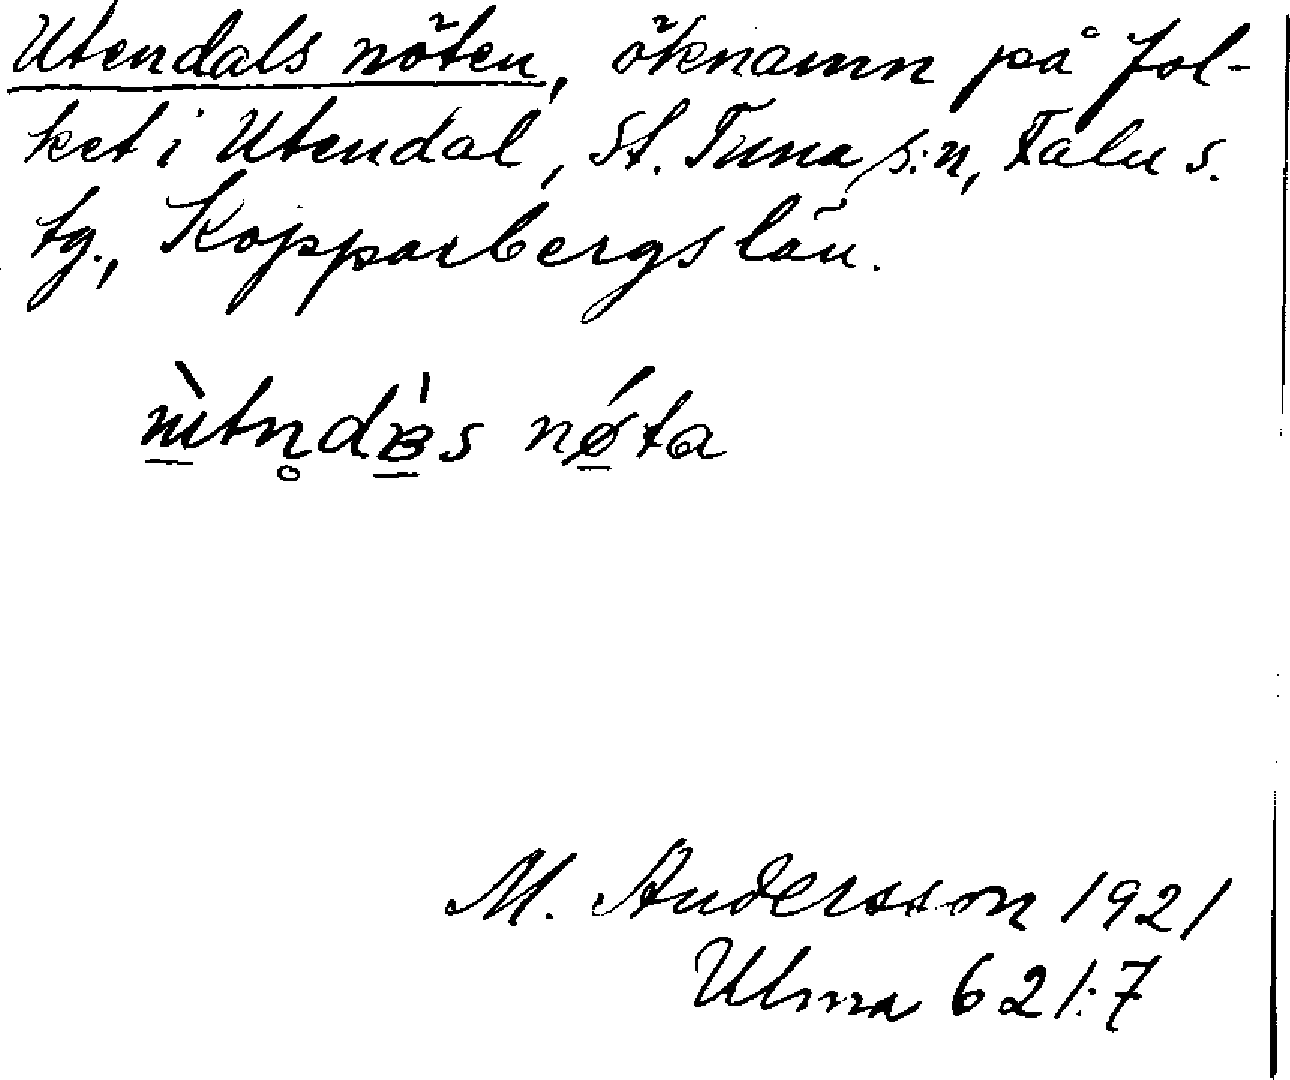 Utendals nöten, öknamn på fol-
ket i Utendal, St. Tuna s:n, Falu s.
tg., Kopparbergs län.
nǿta
M. Andersson 1921
Ulma 621:7